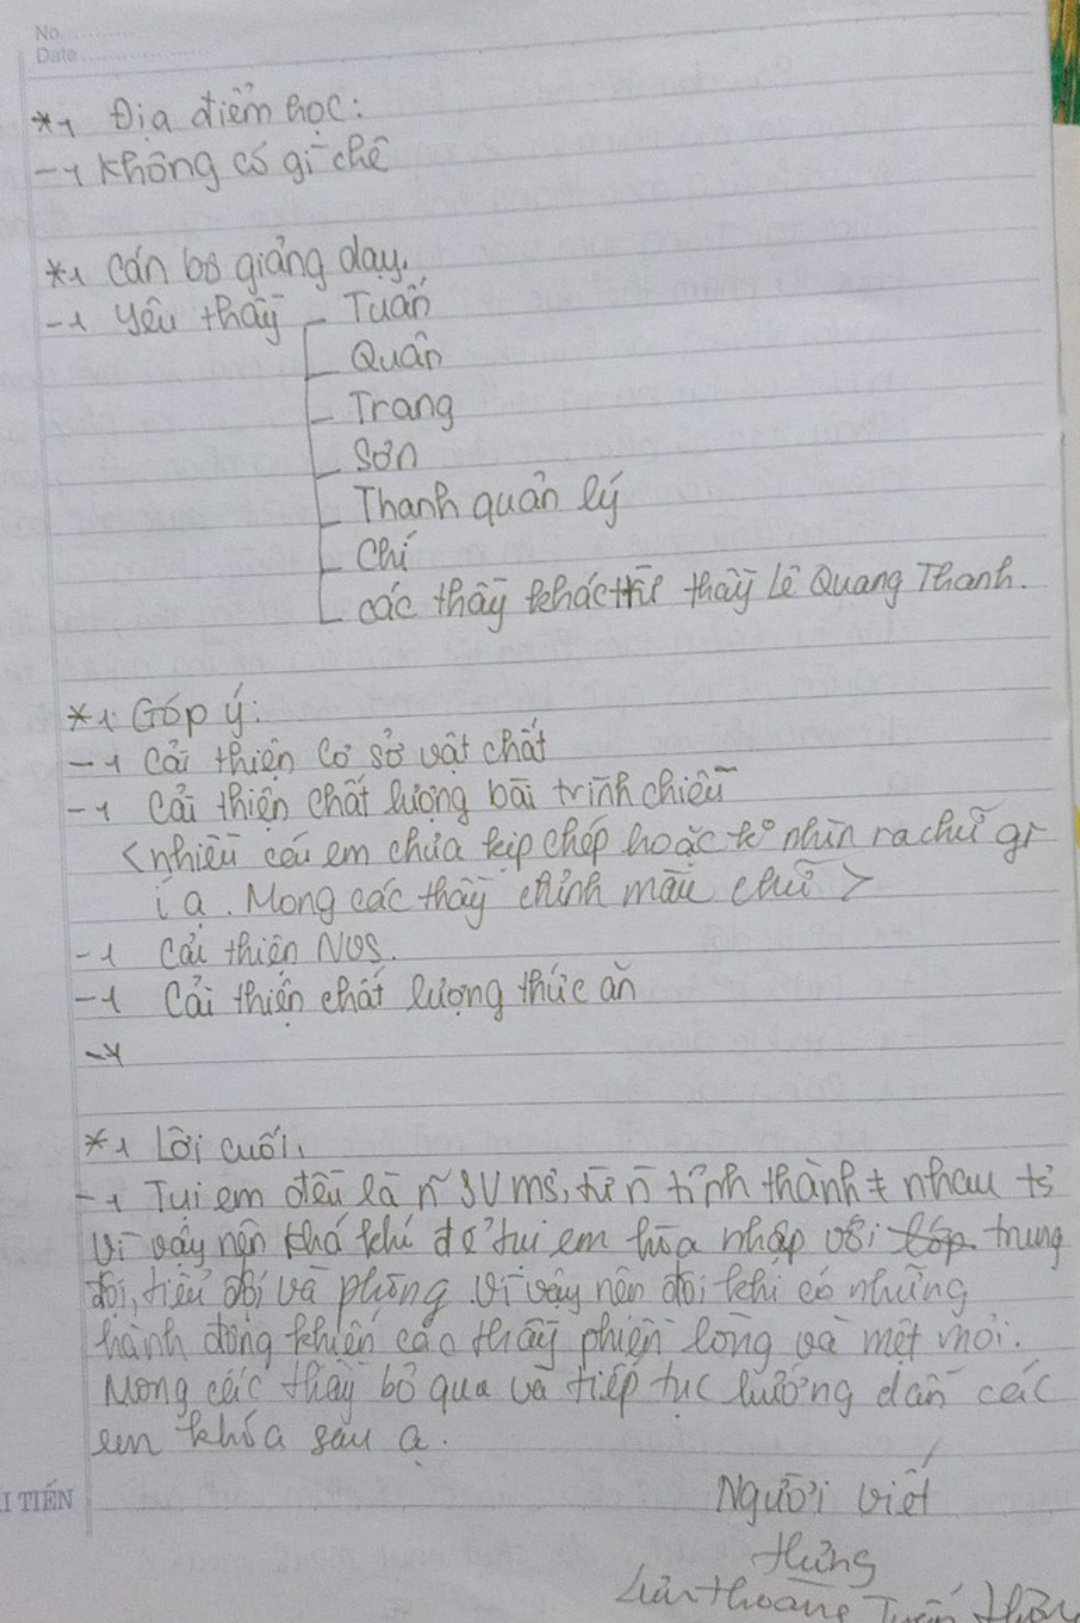 No
Date
* Địa điểm học:
- Không có gì chê
* Cán bộ giảng dạy.
- Yêu thầy - Tuấn
- Quân
- Trang
- Sơn
- Thanh quản lý
- Chí
- các thầy khác trừ thầy Lê Quang Thanh.
* Góp ý:
- Cải thiện cơ sở vật chất
- Cải thiện chất lượng bài trình chiếu
<nhiều cái em chưa kịp chép hoặc k° nhìn ra chữ gì
í ạ. Mong các thầy chỉnh màu chữ>
- Cải thiện NVS.
- Cải thiện chất lượng thức ăn
-
* Lời cuối,
- Tụi em đều là n~ SV ms, từ n~ tỉnh thành ≠ nhau ts
Vì vậy nên khá khí để tụi em hòa nhập với lớp trung
đội, tiểu đội và phòng. Vì vậy nên đôi khi có những
hành động khiến các thầy phiền lòng và mệt mỏi.
Mong các thầy bỏ qua và tiếp tục hướng dẫn các
em khóa sau ạ.
I TIẾN
Người viết
Hưng
Tuấn